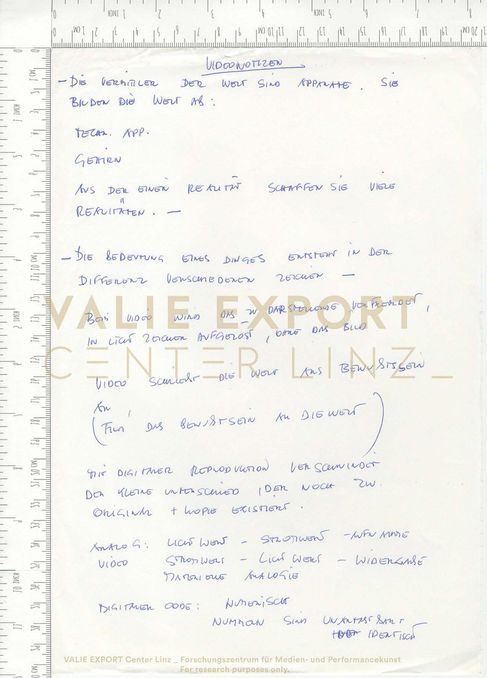 VIDEONOTIZEN
– DIE VERMITTLER DER WELT SIND APPARATE. SIE
BILDEN DIE WELT AB:
MECH. APP.
GEHIRN
AUS DER EINEN REALITÄT SCHAFFEN SIE VIELE
REALITÄTEN. –
– DIE BEDEUTUNG EINES DINGES ENTSTEHT IN DER
DIFFERENZ VERSCHIEDENER ZEICHEN –
BEIM VIDEO WIRD DAS ZU DARSTELLENDE
IN LICHT ZEICHEN AUFGELÖST, OHNE DAS BILD
VIDEO SCHLIESST DIE WELT ANS BEWUSSTSEIN
AN,
(FILM DAS BEWUSSTSEIN AN DIE WELT)
MIT DIGITALER REPRODUKTION VERSCHWINDET
DER KLEINE UNTERSCHIED, DER NOCH ZW.
ORIGINAL + KOPIE EXISTIERT.
ANALOG: LICHTWERT – STROMWERT – AUFNAHME
VIDEO STROMWERT – LICHTWERT – WIEDERGABE
MATERIELLE ANALOGIE
DIGITALER CODE: NUMERISCH
NUMMERN SIND UNANTASTBAR
IDENTISCH
VALIE EXPORT
CENTER LINZ_
VALIE EXPORT Center Linz _ Forschungszentrum für Medien- und Performancekunst
For research purposes only.